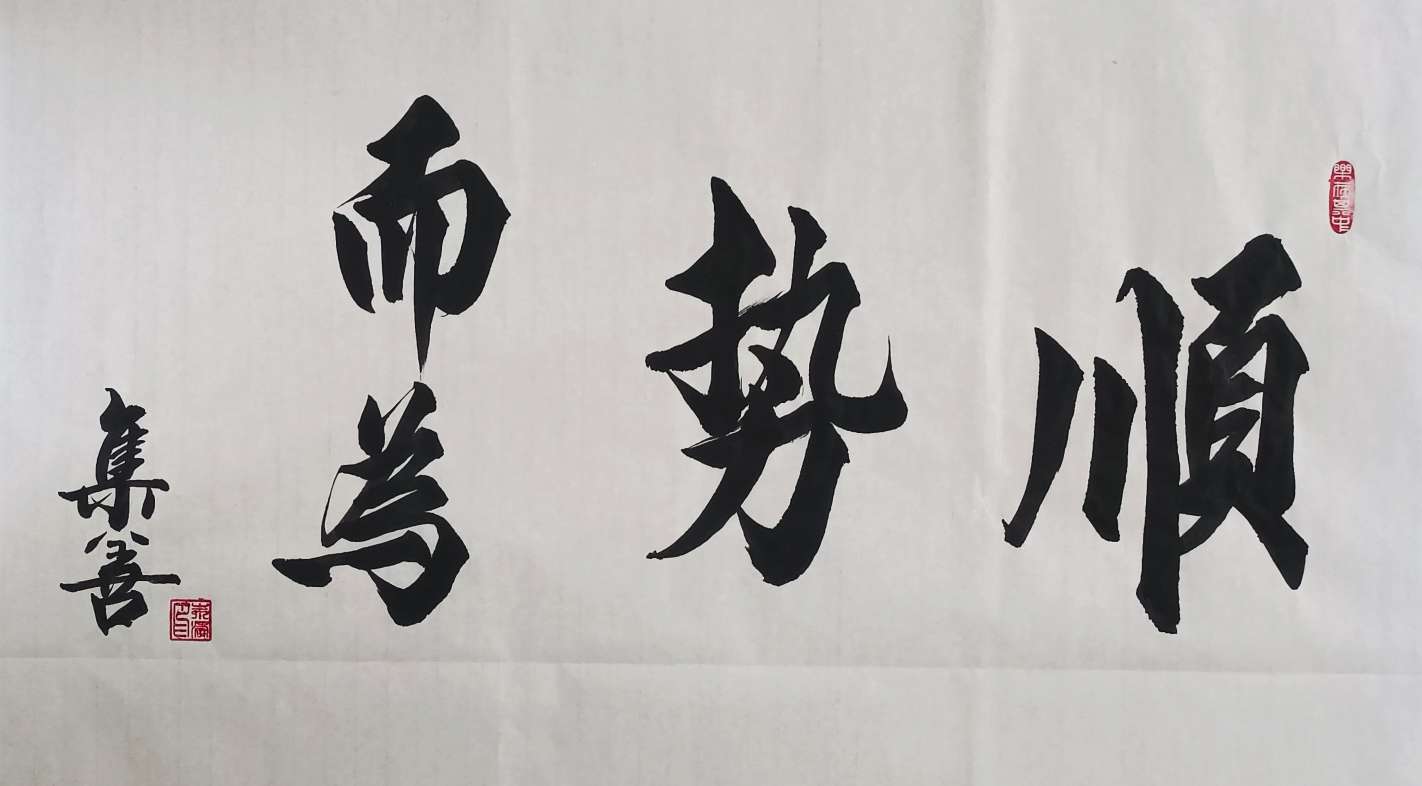 順
勢
而為
集善